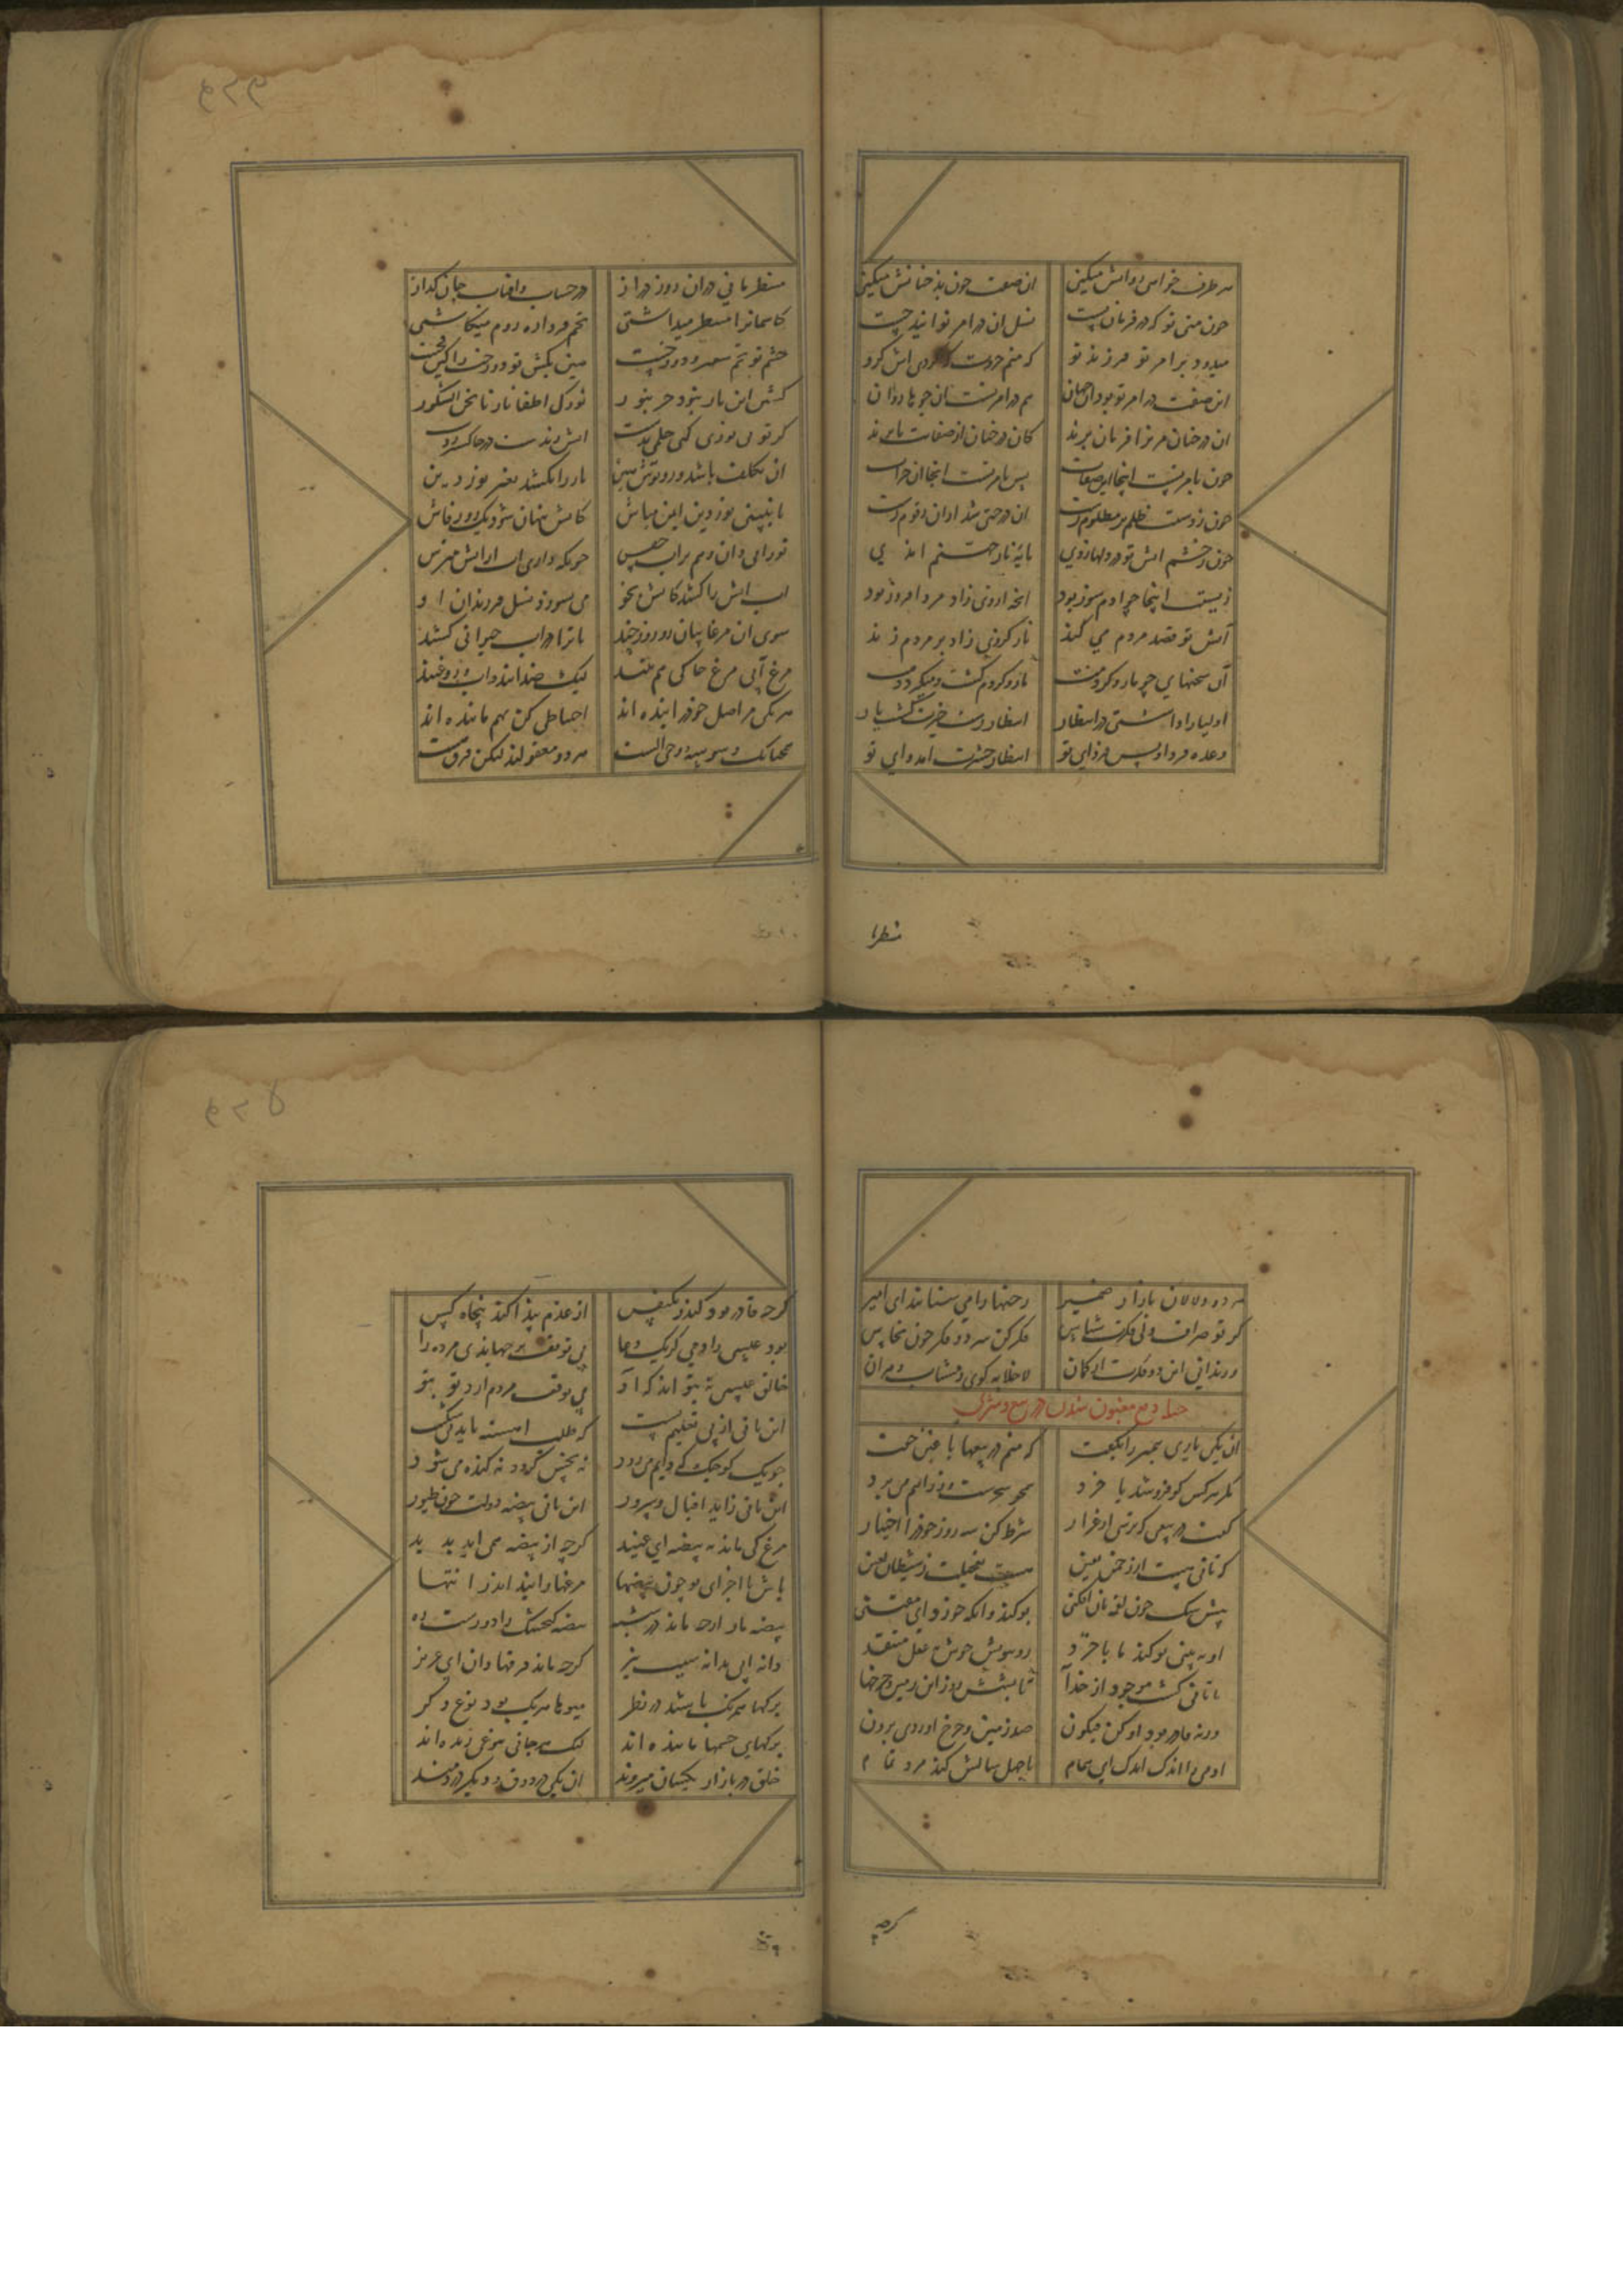 هر طرف خواهی روانش میکنی ان صفت چون بذ چنانش میکنی
چون منی تو که در فرمان تست نسل ان در امر تو ایند چست
میدود بر امر تو فرزند تو که منم جزوت که کردی اش کرو
ان صفت در امر تو بود این جهان هم در امر تست ان جوها روان
ان درختان مر ترا فرمان برند کان درختان از صفاتت بابرند
چون بامر تست اینجا این صفات پس بامر تست انجا ان جزات
چون ز دستت ظلم بر مظلوم رست ان درختی شد ازان زقوم رست
چون ز خشم اتش تو در دلها زدی مایه نار جهنم امذی
اینجا چو ادم سوز بود انچه از وی زاد مرد افروز بود
آتش تو قصد مردم می کند نار کز وی زاد بر مردم زند
آن سخنهای چو مار و کژدمت مار و کژدم کشت و میکیرد دمت
اولیا را داشتی در انتظار انتظار رستخیزت کشت یار
وعده فردا و پس فردای تو انتظار حشرت امد وای تو
منتظر ما
منتظر مانی دران روز دراز در حساب و افتاب جان کداز
کاسمانرا منتظر میداشتی تخم فردا ره روم میکاشتی
خشم تو تخم سعیر دوزخست هین بکش تو دوزخت را کین فخست
کشتن این نار نبود جز بنور نورک اطفا نارنا نحن الشکور
کر تو بی نوری کنی حلمی بدست اتش زندست در خاکسترست
ان تکلف باشد و روپوش هین نار را نکشد بغیر نور دین
تا نبینی نور دین ایمن مباش کاتش پنهان شود یک روز فاش
نور ابی دان و هم بر اب چفس چونکه داری اب از اتش مترس
اب اتش را کشد کاتش بخو می بسوزد نسل و فرزندان او
سوی ان مرغابیان رو روز چند تا ترا در اب حیوانی کشند
مرغ آبی مرغ خاکی هم تنند لیک ضدانند و اب و روغنند
هر یکی مر اصل خود را بنده اند احتیاطی کن بهم ماننده اند
همچنانک وسوسه و وحی الست هر دو معقولند لیکن فرق هست
هر دو دلالان بازار ضمیر رختها را می ستانند ای امیر
کر تو صراف دلی فکرت شناس فرق کن سر دو فکر چون نخاس
ور ندانی این دو فکرت از کمان لا خلابه کوی و مشتاب و مران
حیله دفع مغبون شدن در بیع و شری
ان یکی یاری پیمبر را بکفت که منم در بیعها با غبن جفت
مکر هر کس کو فروشد یا خرد همچو سحرست و ز راهم می برد
کفت در بیعی که ترسی از غرار شرط کن سه روز خود را اختیار
که تانی هست از رحمن یقین هست تعجیلت ز شیطان لعین
پیش سک چون لقمه نان افکنی بو کند وانکه خورد ای معتنی
او به بینی بو کند ما با خرد بو ببوییمش بعقل منتقد
با تانی کشت موجود از خدا تا بشش روز این زمین و چرخها
ورنه قادر بود او کن فیکون صد زمین و چرخ اوردی برون
ادمی را اندک اندک ای همام تا چهل سالش کند مرد تمام
کرچه
کرچه قادر بود کندر یک نفس از عدم پیدا کند پنجاه کس
بود عیسی را دمی کز یک دعا بی توقف بر جهاندی مرده را
خالق عیسی نه بتواند که او بی توقف مردم ارد تو بتو
این تانی از پی تعلیم تست که طلب اهسته باید بی شکست
جویک کوچک که دایم می رود نه نجس کردد نه کنده می شود
زین تانی زاید اقبال و سرور این تانی بیضه دولت چون طیور
مرغ کی ماند به بیضه ای عنید کرچه از بیضه همی اید بدید
باش تا اجزای تو چون بیضها مرغها زایند اندر انتها
بیضه مار ارچه ماند در شبه بیضه کنجشک را دورست ره
دانه ابی بدانه سیب نیز کرچه ماند فرقها دان ای عزیز
برکها همرنک باشد در نظر میوها هر یک بود نوع دکر
برکهای جسمها ماننده اند لیک هر جانی بنوعی زنده اند
خلق در بازار یکسان میروند ان یکی در ذوق و دیکر دردمند